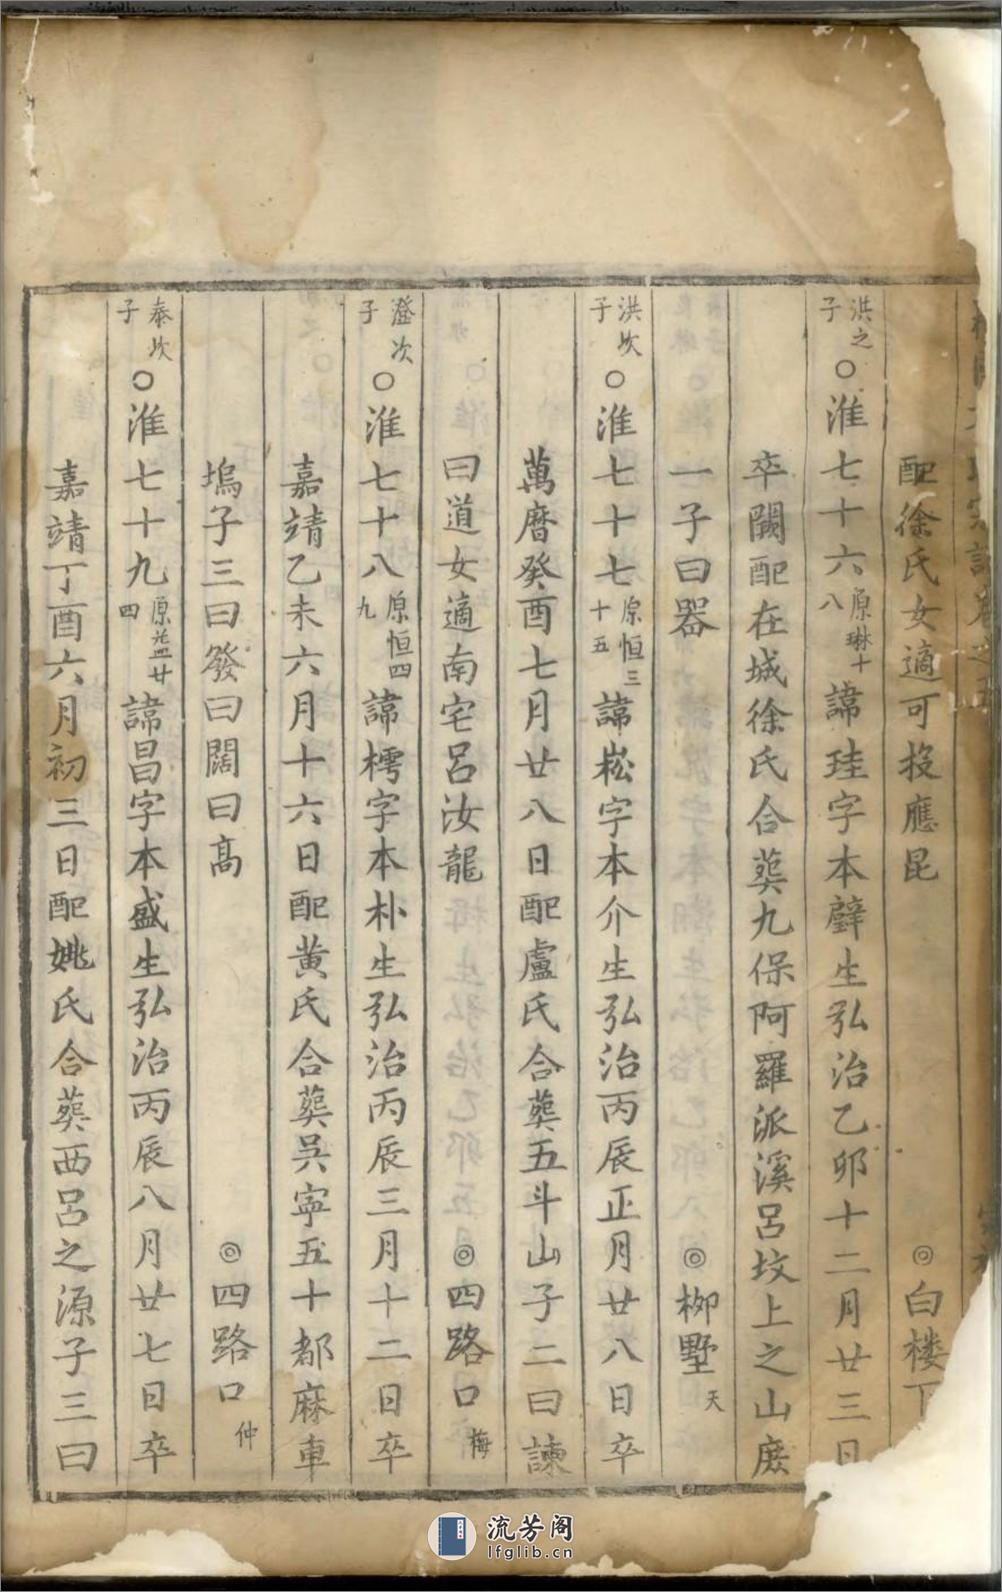 配徐氏女適可投應昆 ◎白楼下
洪之子○淮七十六原琳十八諱珪字本璧生弘治乙卯十二月廿三日
卒闕配在城徐氏合葬九保阿羅派溪呂坟上之山庶
一子曰器 ◎柳墅天
洪次子○淮七十七原恒三十五諱崧字本介生弘治丙辰正月廿八日卒
萬曆癸酉七月廿八日配盧氏合葬五斗山子二曰諫
曰道女適南宅呂汝龍 ◎四路口梅
澄次子○淮七十八原恒四九諱樗字本朴生弘治丙辰三月十二日卒
嘉靖乙未六月十六日配黄氏合葬吳寧五十都麻車
塢子三曰發曰闊曰高 ◎四路口仲
泰次子○淮七十九原益廿四諱昌字本盛生弘治丙辰八月廿七日卒
嘉靖丁酉六月初三日配姚氏合葬西呂之源子三曰
流芳阁
lfglib.cn